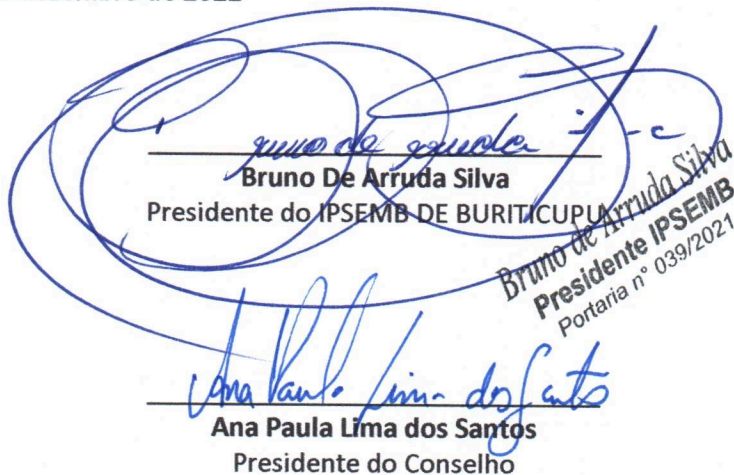 de 2022
Bruno de Arruda
Bruno De Arruda Silva
Presidente do IPSEMB DE BURITICUPU
Bruno de Arruda Silva
Presidente IPSEMB
Portaria n° 039/2021
Ana Paula Lima dos Santos
Ana Paula Lima dos Santos
Presidente do Conselho